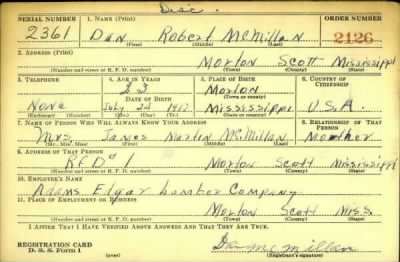 Disc.
SERIAL NUMBER 1. NAME (Print) ORDER NUMBER
2361 Dan Robert McMillan 2126
(First) (Middle) (Last)
2. ADDRESS (Print)
Morton Scott Mississippi
(Number and street or R. F. D. number) (Town) (County) (State)
3. TELEPHONE 4. AGE IN YEARS 5. PLACE OF BIRTH 6. COUNTRY OF CITIZENSHIP
23 Morton
DATE OF BIRTH (Town or county)
None July 24 1917 Mississippi U.S.A.
(Exchange) (Number) (Mo.) (Day) (Yr.) (State or country)
7. NAME OF PERSON WHO WILL ALWAYS KNOW YOUR ADDRESS 8. RELATIONSHIP OF THAT PERSON
Mrs. James McMillan Mother
(Mr., Mrs., Miss) (First) (Middle) (Last)
9. ADDRESS OF THAT PERSON
RFD 1 Morton Scott Mississippi
(Number and street or R. F. D. number) (Town) (County) (State)
10. EMPLOYER'S NAME
Adams Edgar Lumber Company
11. PLACE OF EMPLOYMENT OR BUSINESS
Morton Scott Miss.
(Number and street or R. F. D. number) (Town) (County) (State)
I AFFIRM THAT I HAVE VERIFIED ABOVE ANSWERS AND THAT THEY ARE TRUE.
REGISTRATION CARD
D. S. S. Form 1 Dan McMillan
(Registrant's signature)